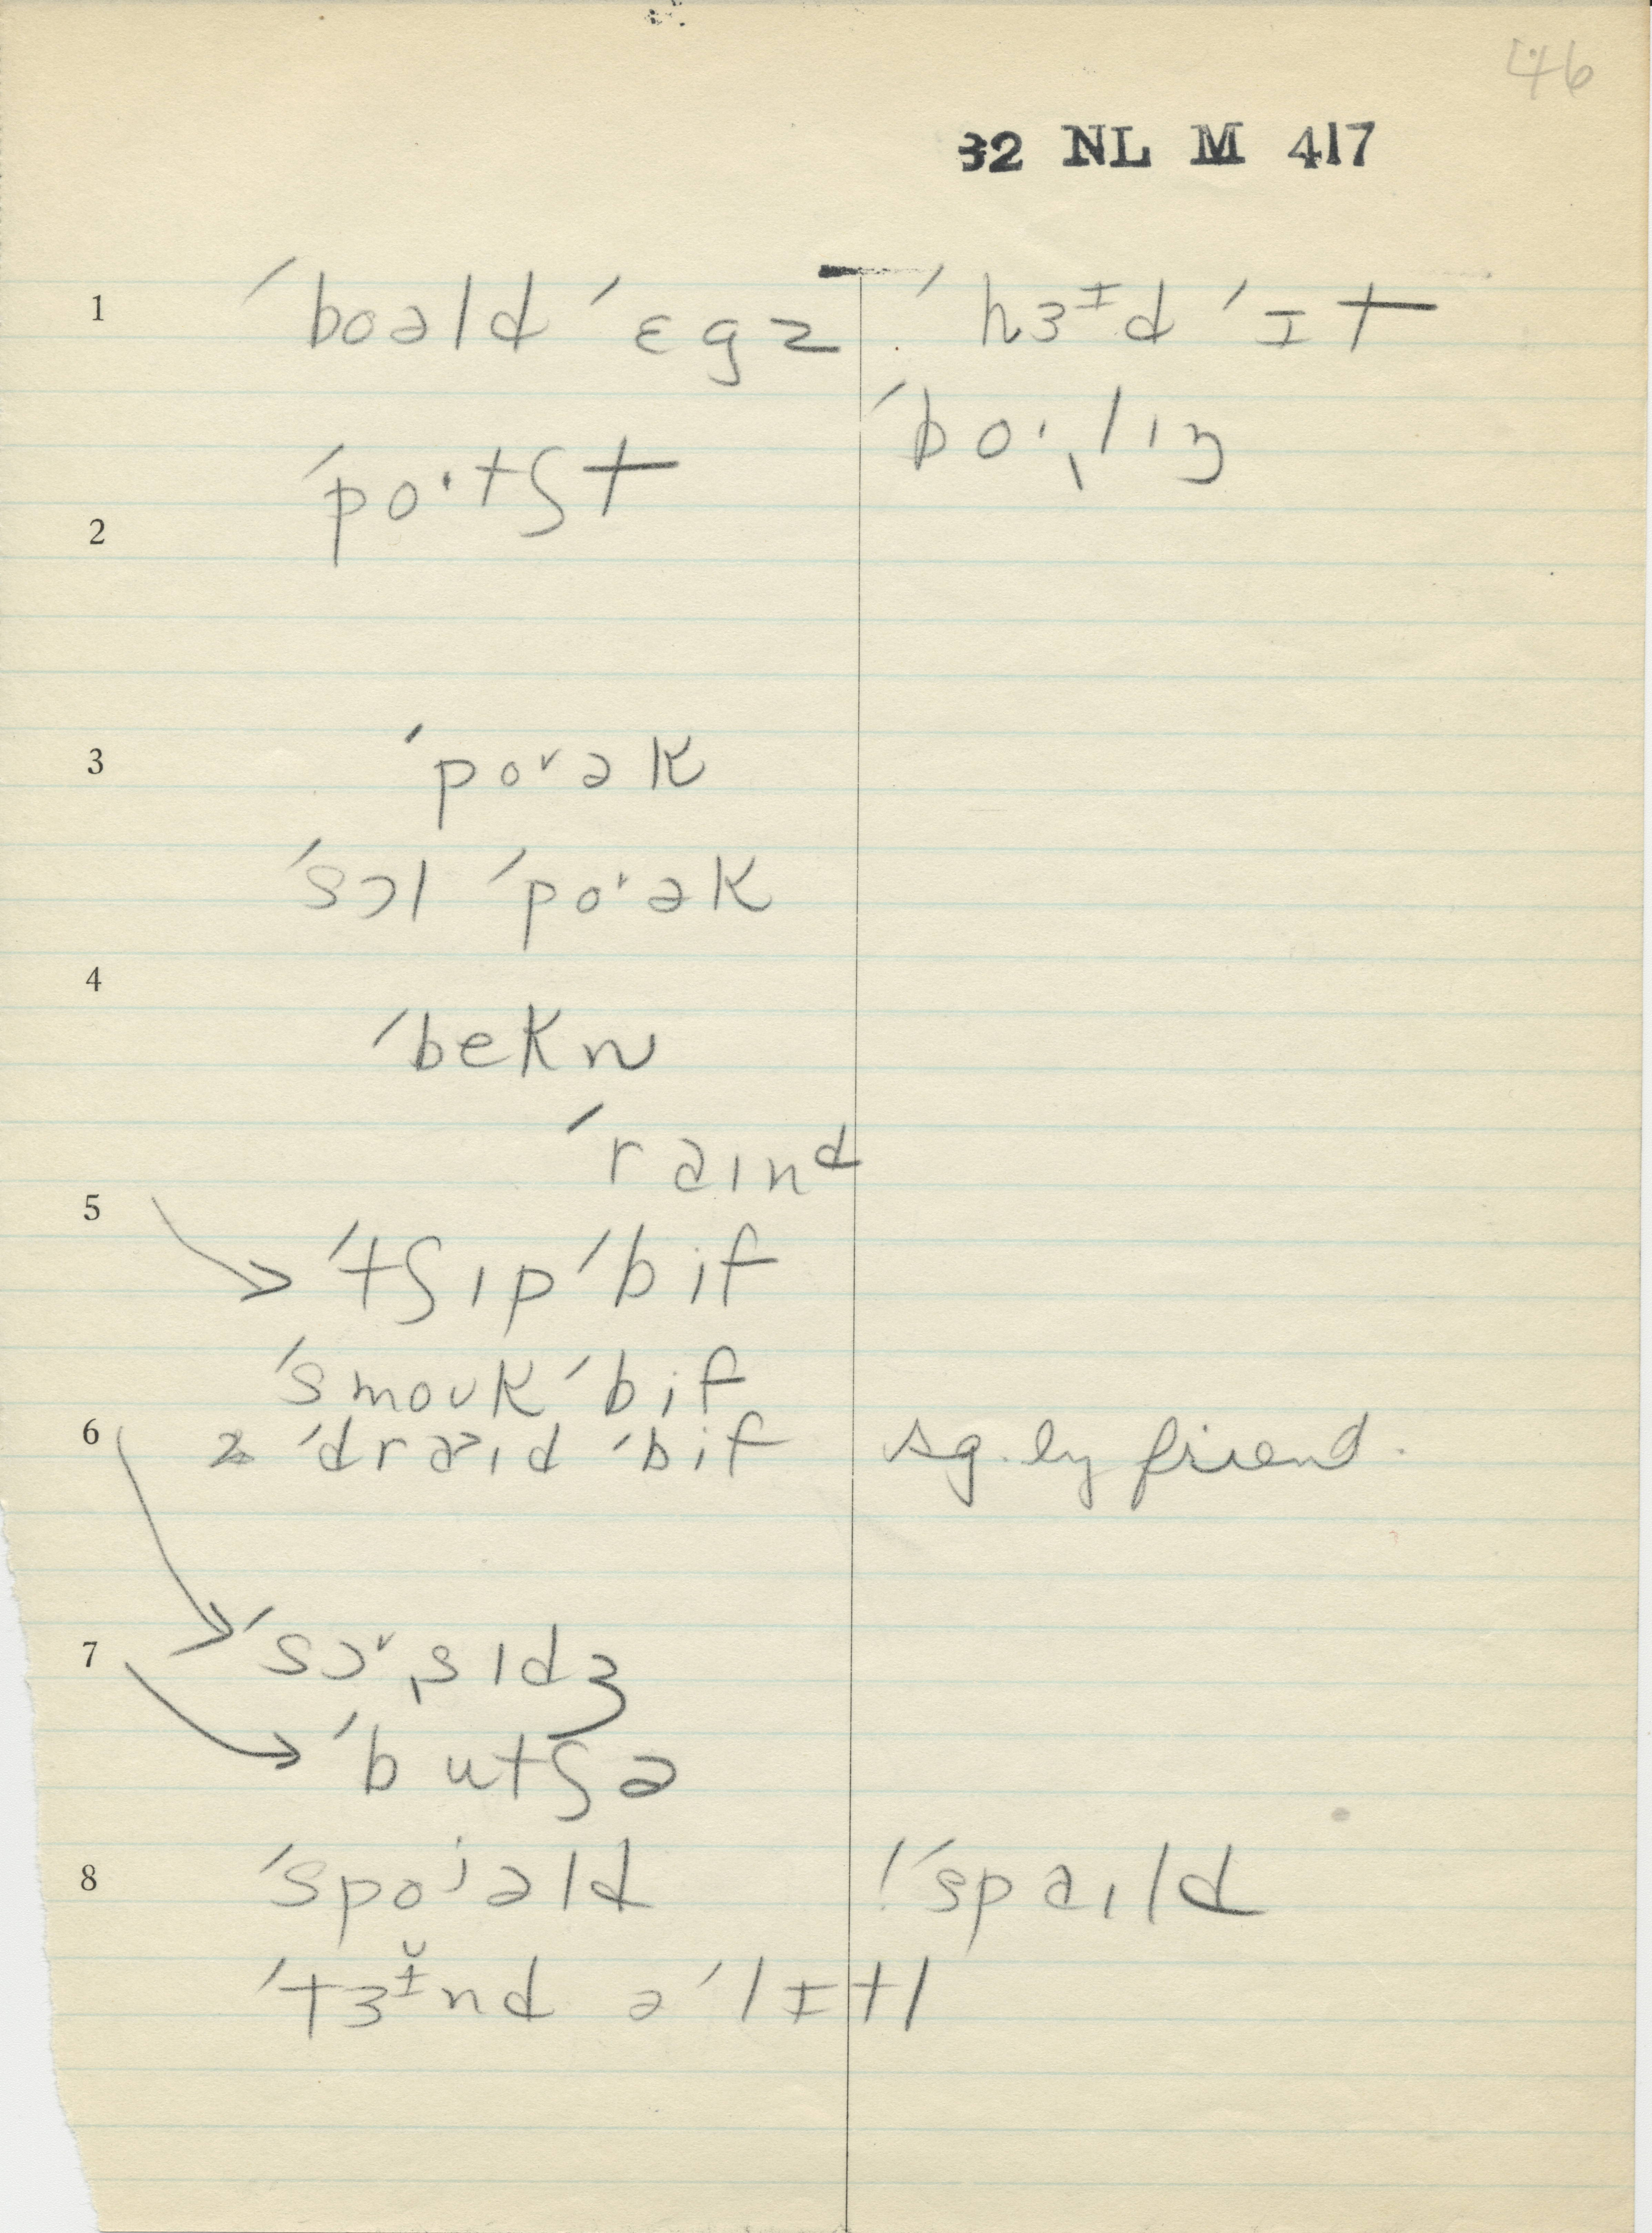 46
32 NL M 417
1 ˈboəld ˈɛgz ˈhɜᶦd ˈɪt
ˈboˑˌlɪŋ
2 ˈpoˑtʃt
3 ˈpoˇək
ˈsɔl ˈpoˇək
4 ˈbekn
ˈraɪnd
5 → ˈtʃɪp ˈbif
ˈsmoʊk ˈbif
6 ˈdraˀɪd ˈbif sg. by friend.
→ ˈsɔˇˌsɪdʒ
7 → ˈbutʃə
8 ˈspoʲəld ! ˈspaɪld
ˈtɜᶦ̆nd ə ˈlɪtl